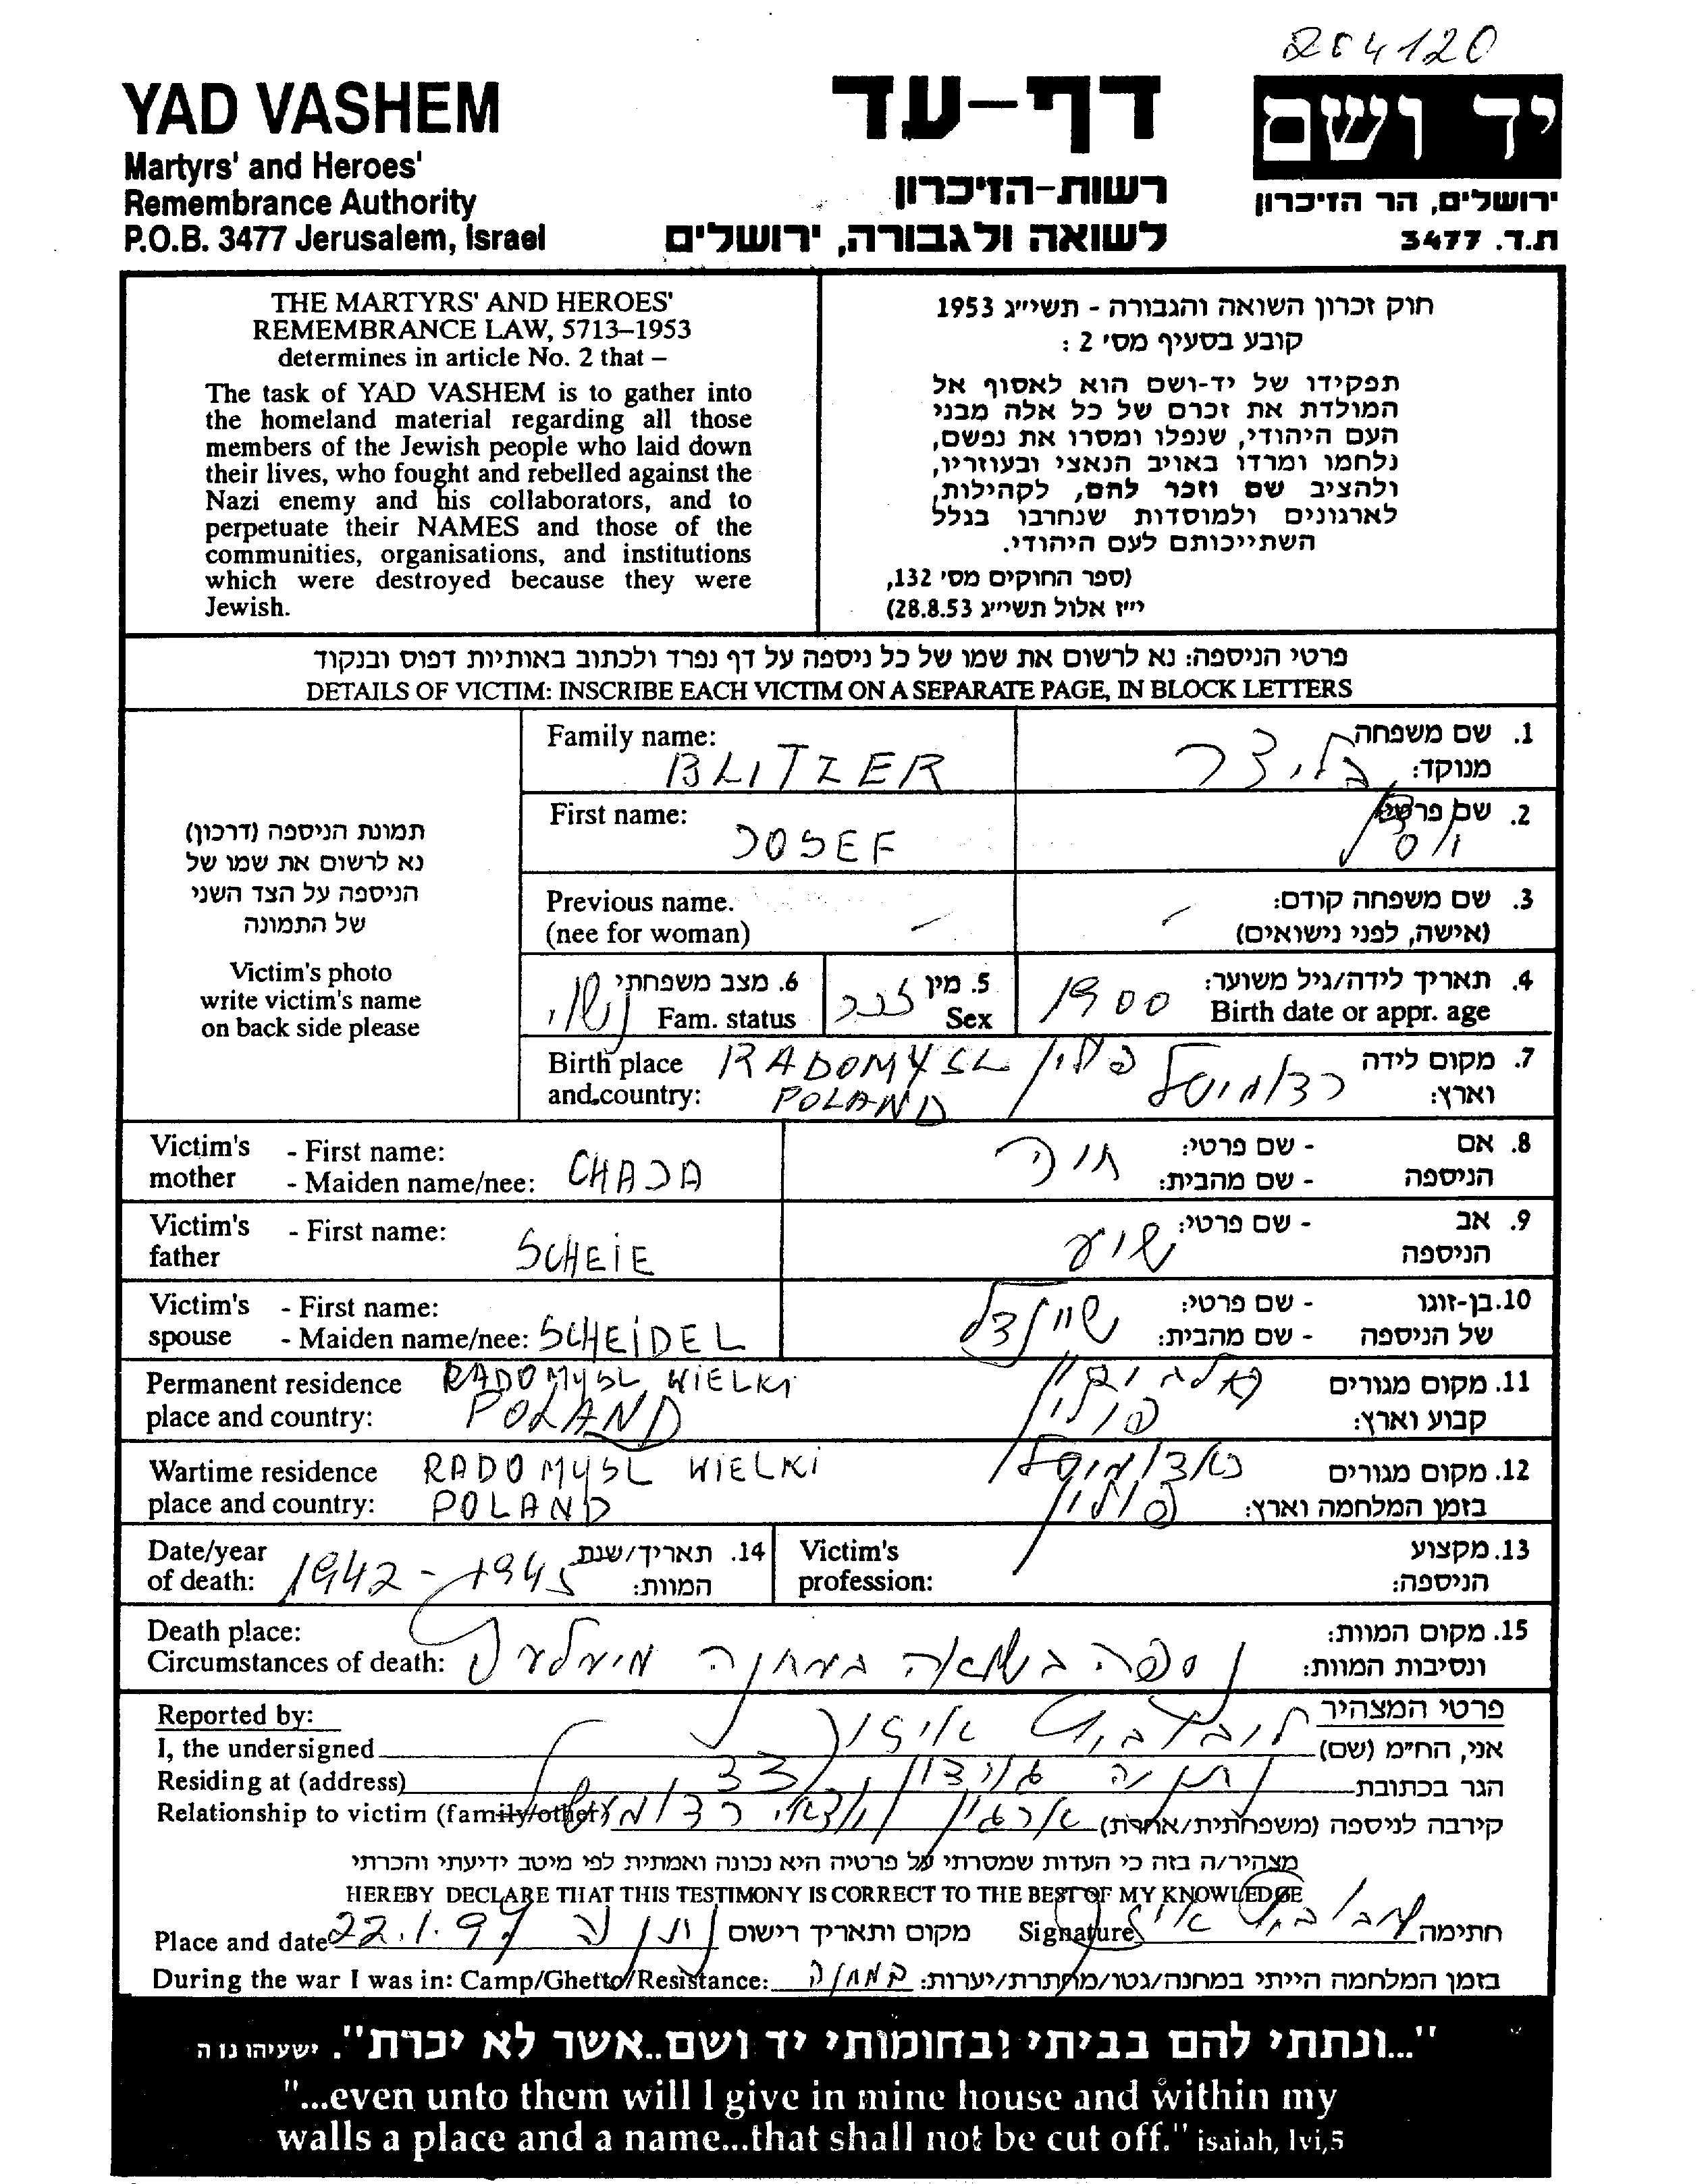 204120
YAD VASHEM
Martyrs' and Heroes'
Remembrance Authority
P.O.B. 3477 Jerusalem, Israel
דף-עד
רשות-הזיכרון
לשואה ולגבורה, ירושלים
יד ושם
ירושלים, הר הזיכרון
ת.ד. 3477
THE MARTYRS' AND HEROES'
REMEMBRANCE LAW, 5713–1953
determines in article No. 2 that –
The task of YAD VASHEM is to gather into
the homeland material regarding all those
members of the Jewish people who laid down
their lives, who fought and rebelled against the
Nazi enemy and his collaborators, and to
perpetuate their NAMES and those of the
communities, organisations, and institutions
which were destroyed because they were
Jewish.
חוק זכרון השואה והגבורה - תשי״ג 1953
קובע בסעיף מס׳ 2 :
תפקידו של יד-ושם הוא לאסוף אל
המולדת את זכרם של כל אלה מבני
העם היהודי, שנפלו ומסרו את נפשם,
נלחמו ומרדו באויב הנאצי ובעוזריו,
ולהציב שם וזכר להם, לקהילות,
לארגונים ולמוסדות שנחרבו בגלל
השתייכותם לעם היהודי.
(ספר החוקים מס׳ 132,
י״ז אלול תשי״ג 28.8.53)
פרטי הניספה: נא לרשום את שמו של כל ניספה על דף נפרד ולכתוב באותיות דפוס ובנקוד
DETAILS OF VICTIM: INSCRIBE EACH VICTIM ON A SEPARATE PAGE, IN BLOCK LETTERS
תמונת הניספה (דרכון)
נא לרשום את שמו של
הניספה על הצד השני
של התמונה
Victim's photo
write victim's name
on back side please
Family name: BLITZER
1. שם משפחה מנוקד: בליצר
First name: JOSEF
2. שם פרטי: יוסף
Previous name.
(nee for woman) –
3. שם משפחה קודם: –
(אישה, לפני נישואים)
6. מצב משפחתי נשוי
Fam. status
5. מין זכר
Sex
4. תאריך לידה/גיל משוער: 1900
Birth date or appr. age
Birth place RADOMYSL
and country: POLAND
7. מקום לידה רדומישל פולין
וארץ:
Victim's mother - First name: CHAJA
- Maiden name/nee:
8. אם הניספה - שם פרטי: חיה
- שם מהבית:
Victim's father - First name: SCHEIE
9. אב הניספה - שם פרטי: שיע
Victim's spouse - First name:
- Maiden name/nee: SCHEIDEL
10. בן-זוגו של הניספה - שם פרטי: שיינדל
- שם מהבית:
Permanent residence RADOMYSL WIELKI
place and country: POLAND
11. מקום מגורים
קבוע וארץ: פולין
Wartime residence RADOMYSL WIELKI
place and country: POLAND
12. מקום מגורים
בזמן המלחמה וארץ: פולין
Date/year
of death: 1942 - 1945
14. תאריך/שנת
המוות:
Victim's
profession:
13. מקצוע
הניספה:
Death place:
Circumstances of death:
15. מקום המוות:
ונסיבות המוות: נספה בשואה במחנה מיעלעץ
Reported by:
פרטי המצהיר
I, the undersigned
אני, החי״מ (שם)
Residing at (address)
הגר בכתובת 33 נתניה
Relationship to victim (family/other)
קירבה לניספה (משפחתית/אחרת) ארגון יוצאי רדומישל
מצהיר/ה בזה כי העדות שמסרתי על פרטיה היא נכונה ואמתית לפי מיטב ידיעתי והכרתי
HEREBY DECLARE THAT THIS TESTIMONY IS CORRECT TO THE BEST OF MY KNOWLEDGE
Place and date 22.1.97 נתניה מקום ותאריך רישום
Signature חתימה
During the war I was in: Camp/Ghetto/Resistance: במחנה
בזמן המלחמה הייתי במחנה/גטו/מחתרת/יערות:
"...ונתתי להם בביתי ובחומותי יד ושם..אשר לא יכרת". ישעיהו נו ה
"...even unto them will I give in mine house and within my
walls a place and a name...that shall not be cut off." isaiah, lvi,5